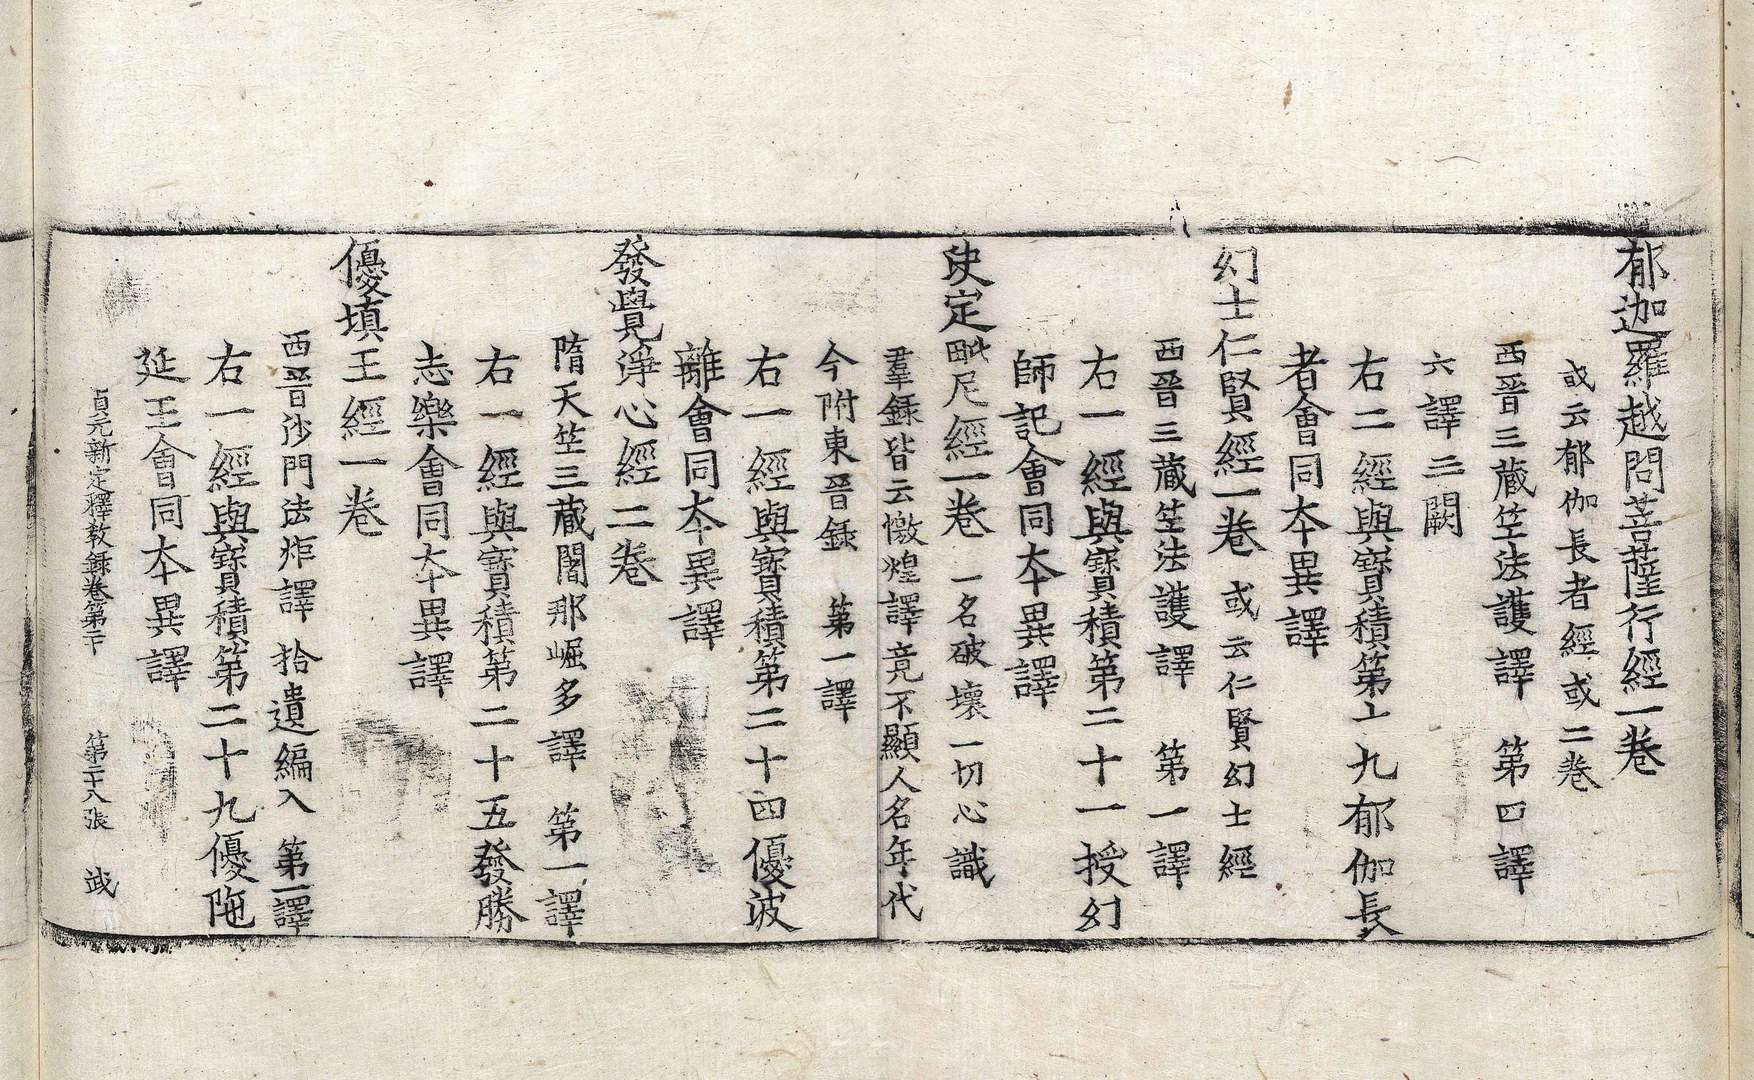 郁迦羅越問菩薩行經一卷
或云郁伽長者經或二卷
西晉三藏竺法護譯　第四譯
六譯三闕
右二經與寶積第十九郁伽長
者會同本異譯
幻士仁賢經一卷　或云仁賢幻士經
西晉三藏竺法護譯　第一譯
右一經與寶積第二十一授幻
師記會同本異譯
決定毗尼經一卷　一名破壞一切心識
羣錄皆云燉煌譯竟不顯人名年代
今附東晉錄　第一譯
右一經與寶積第二十四優波
離會同本異譯
發覺淨心經二卷
隋天竺三藏闍那崛多譯　第一譯
右一經與寶積第二十五發勝
志樂會同本異譯
優填王經一卷
西晉沙門法炬譯　拾遺編入　第一譯
右一經與寶積第二十九優陁
延王會同本異譯
貞元新定釋教錄卷第二十　第二十八張